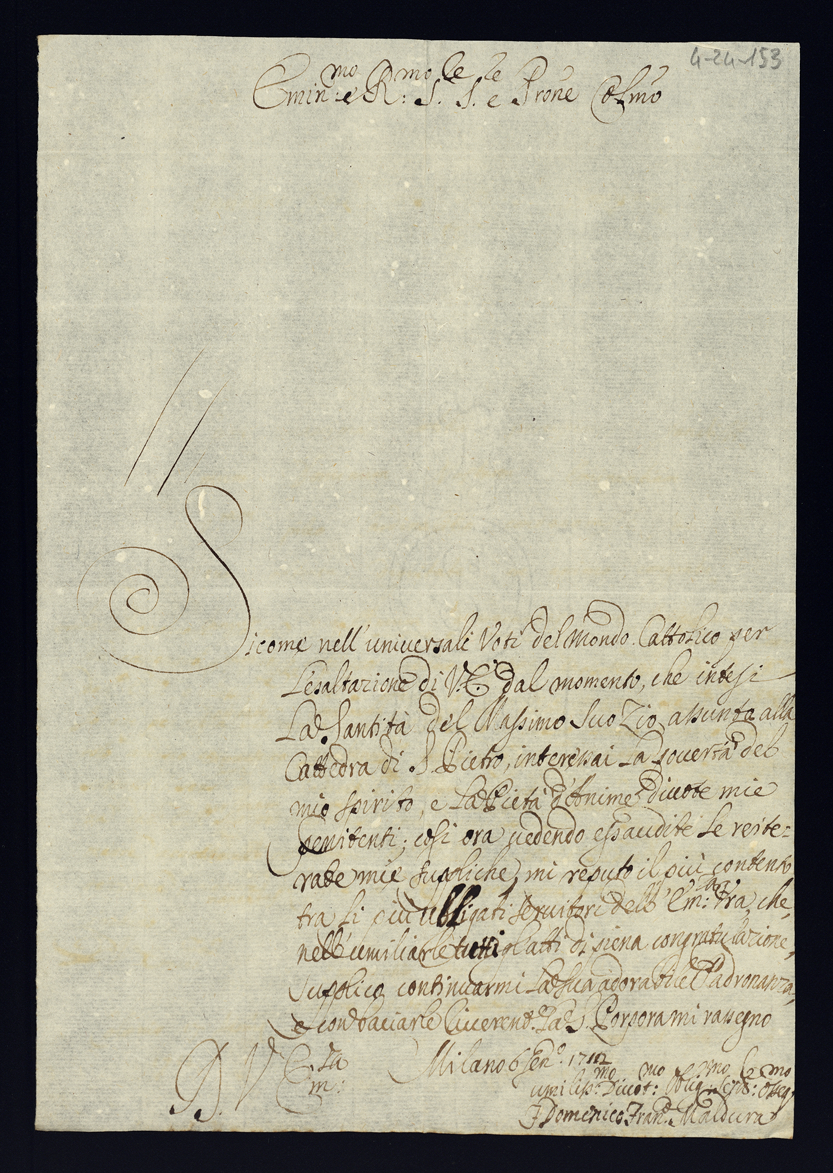 4-24-153
Emin:mo e R:mo S.le S.le e Prone Colmo
Sicome nell'universali Voti del Mondo Cattolico per
L'esaltazione di V.E. dal momento, che intesi
La Santità del Massimo Suo Zio assunta alla
Cattedra di S. Pietro, interessai La povertà del
mio Spirito, e La Pietà d'Anime divote mie
penitenti; così ora vedendo essaudite Le reite=
rate mie suppliche, mi reputo il più contento
tra Li più obbligati Servitori dell'Em:za Vra, che
nell'umiliarle tutti gl'atti di piena congratulazione,
Supplico continuarmi La sua adorabile Padronanza,
e con baciarle riverent. La S. Porpora mi rassegno
D. V. Em:za Milano 6 Gen. 1712
umiliss:mo Divot:mo Oblig:mo Ser:le Osseq:mo
F. Domenico Fran. Maldura